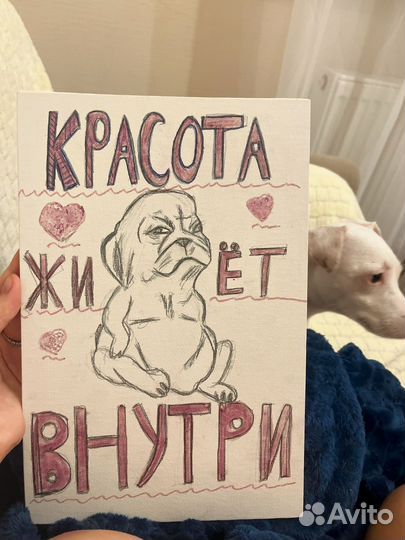 КРАСОТА
ЖИВЁТ
ВНУТРИ
Avito